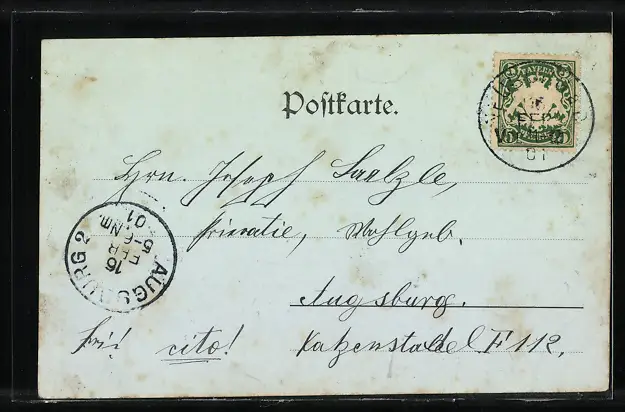 BAYERN
5 5
16
FEB
01
Postkarte.
Hrn. Joseph
Privatie, Wohlgeb.
Augsburg.
cito! Katzenstadel F 112.
AUGSBURG 2
16
FEB
5-6 NM.
01